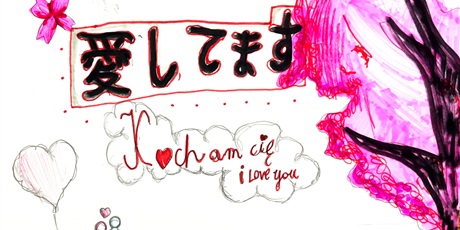 愛してます
Kocham cię
i Love you